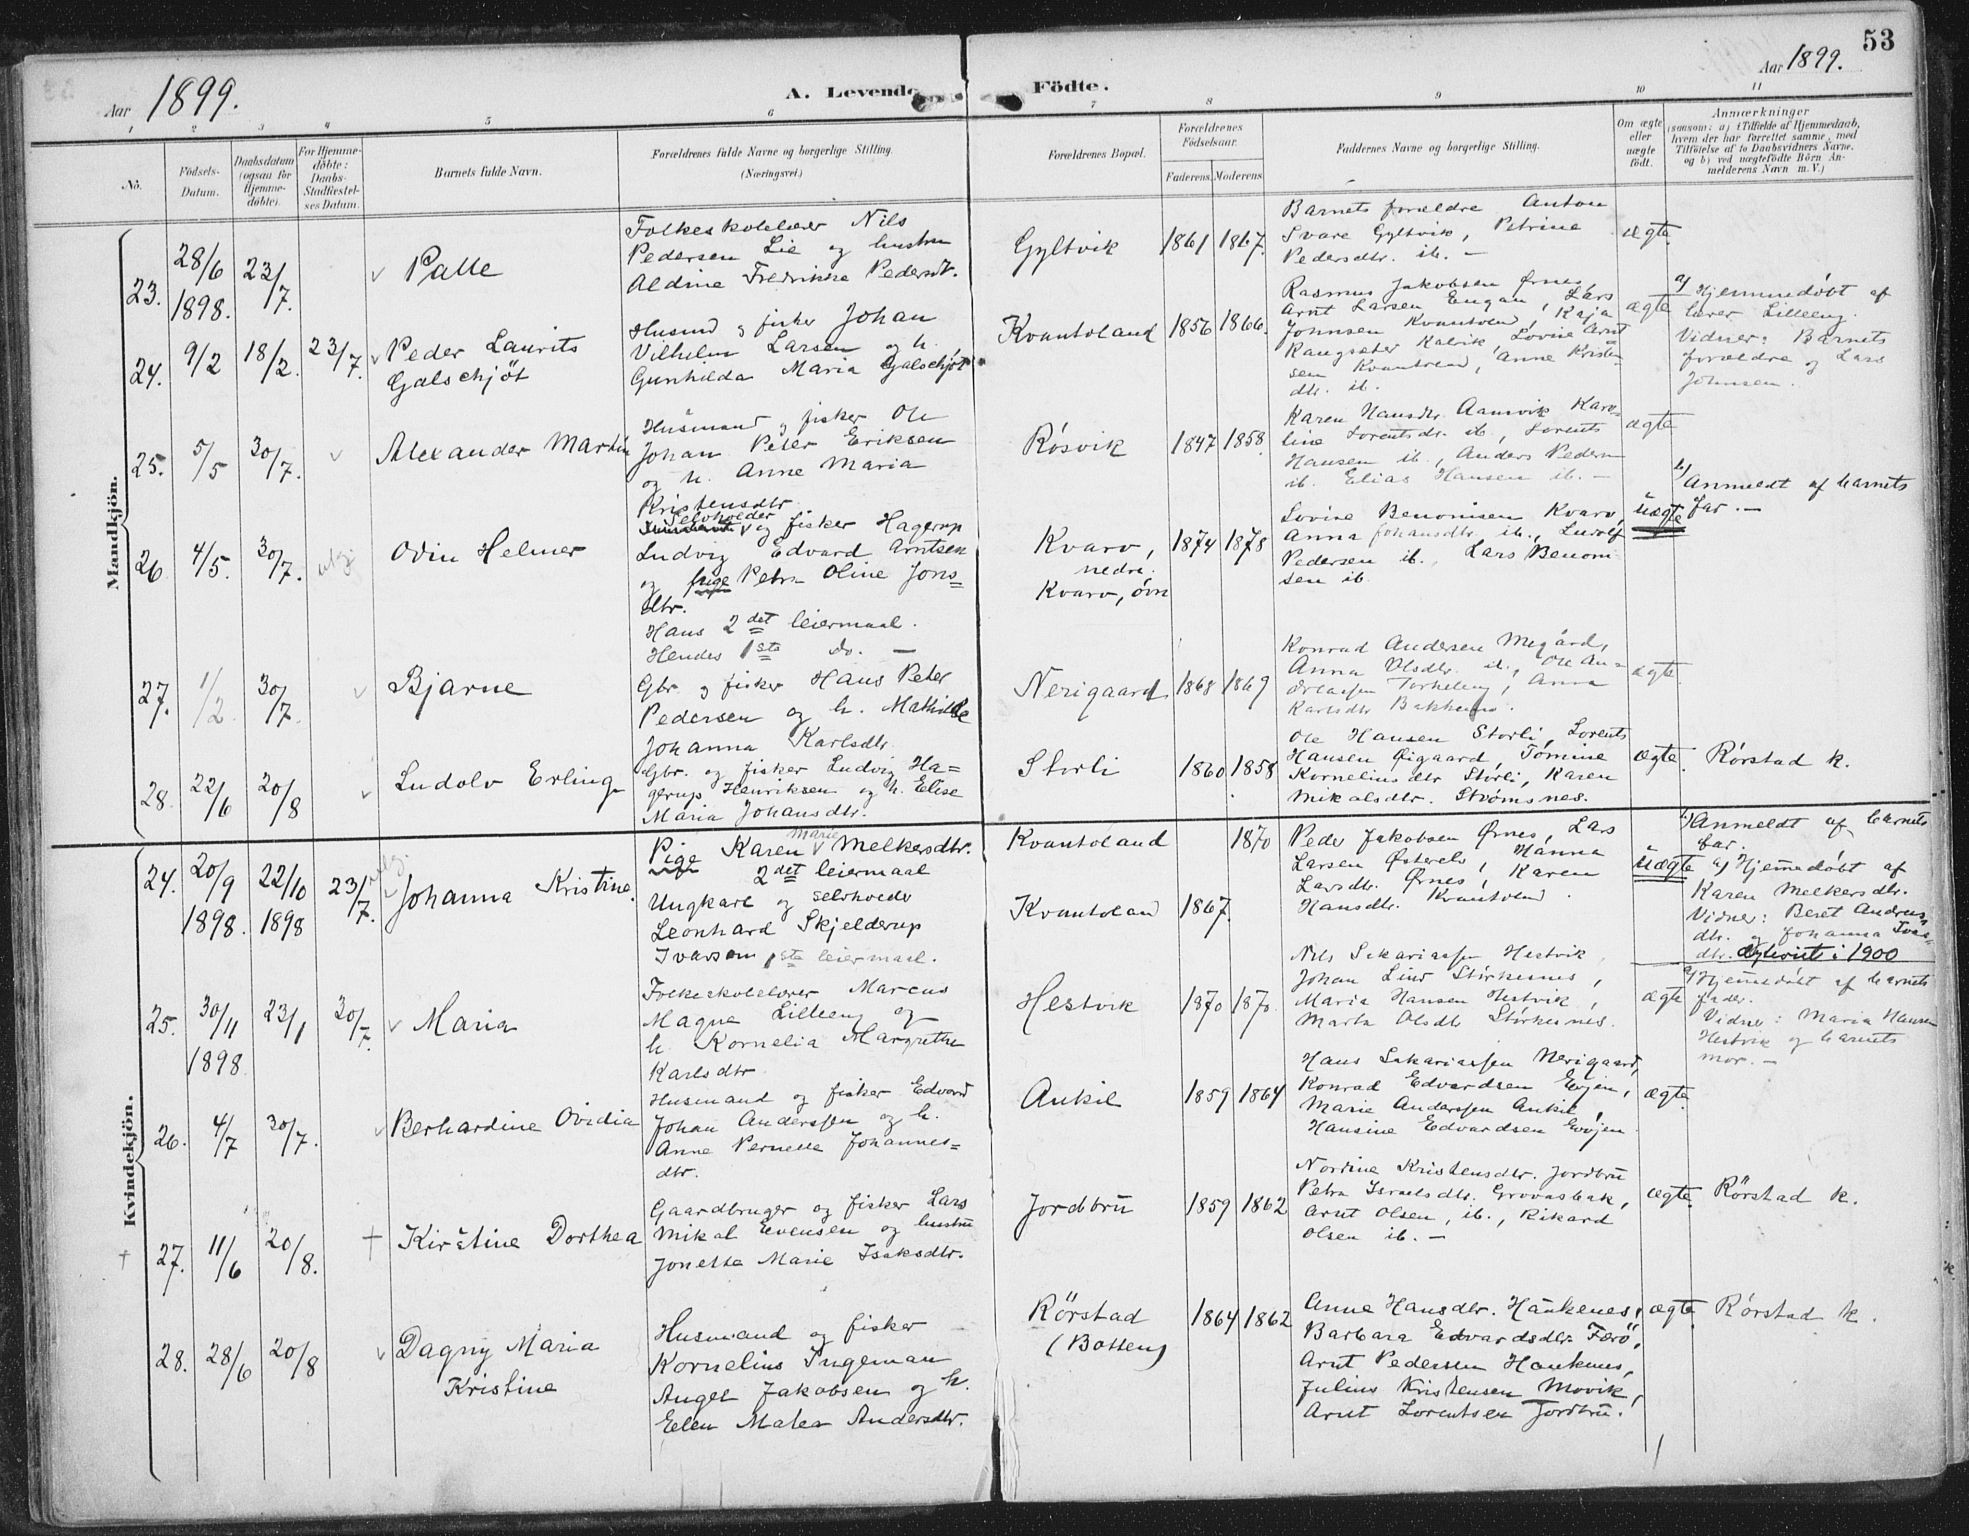 53
Aar 1899.
A. Levende Födte.
Aar 1899.
1 2 3 4 5 6 7 8 9 10 11
No.
Födsels-
Datum.
Daabsdatum
(ogsaa for
Hjemme-
döbte).
For Hjemme-
döbte:
Daabs-
Stadfæstel-
ses Datum.
Barnets fulde Navn.
Forældrenes fulde Navne og borgerlige Stilling.
(Næringsvei.)
Forældrenes Bopæl.
Forældrenes
Födselsaar.
Faderens. Moderens.
Faddernes Navne og borgerlige Stilling.
Om ægte
eller
uægte
födt.
Anmærkninger
(saasom: a) i Tilfælde af Hjemmedaab,
hvem der har forrettet samme, med
Tilföielse af to Daabsvidners Navne,
og b) ved uægtefödte Börn An-
melderens Navn m. V.)
Mandkjön.
23.
28/6
1898.
23/7.
Palle
Folkeskolelærer Nils
Pedersen Lie og hustru
Aldine Fredrikke Pedersdt.
Gyltvik
1861 1867.
Barnets forældre Anton
Svare Gyltvik, Petrine
Pedersdtr. ib. —
ægte
24.
9/2
18/2.
23/7.
Peder Laurits
Galschjöt
Husmd og fisker Johan
Vilhelm Larsen og h.
Gunhilda Maria Galschjöt
Kvantoland
1856 1866.
Rasmus Jakobsen Ørnes,
Arnt Larsen Engan, Lars
Johnsen Kvantolnd, Kaja
Kalvik, Lovise Arnt
sen Kvantolnd, Anne Kristen
dtr. ib.
ægte
a) Hjemmedøbt af
lærer Lilleeng.
Vidner: Barnets
forældre og Lars
Johnsen.
25.
5/5
30/7.
Alexander Martin
Husmand og fisker Ole
Johan Peter Eriksen
og h. Anne Maria
Kristensdtr
Røsvik
1847 1858.
Karen Hansdtr. Aansvik Karo-
line Lorentsdr. ib., Lorents
Hansen ib., Anders Pedersen
ib. Elias Hansen ib. —
ægte
26
4/5.
30/7.
Odin Helmer
Selvholder
og fisker Hagerup
Ludvig Edvard Arntsen
og pige Petra Oline Jons=
dtr.
Hans 2det leiermaal.
Hendes 1ste do. —
Kvarv,
nedre.
Kvarv, övre
1874 1878
Lovise Benonisen Kvarv,
Anna Johansdtr ib., Ludolf
Pedersen ib., Lars Benoni
sen ib.
uægte
b) Anmeldt af barnets
far. —
27.
1/2
30/7
Bjarne
Gbr. og fisker Hans Peter
Pedersen og h. Mathilde
Johanna Karlsdtr.
Nerigaard
1868 1869
Konrad Andersen Megård,
Anna Olsdtr. ib., Ole An-
dreassen Torkeleng, Anna
Karlsdtr Bakken.
ægte.
28.
22/6
20/8
Ludolv Erling
Gbr. og fisker Ludvig Ha=
gerup Henriksen og h. Elise
Maria Johansdtr.
Storli
1860 1858
Ole Hansen Storli, Lorents
Hansen Øigaard, Tömine
Kornelius dtr Storli, Karen
Mikalsdtr. Strømsnes.
ægte.
Rørstad k.
Kvindekjön.
24.
20/9
1898.
22/10
1898
23/7.
Johanna Kristine.
Pige Karen Marie Melkersdtr.
2det leiermaal
Ungkarl og selvholder
Leonhard Skjelderup
Ivarson 1ste leiermaal.
Kvantoland
Kvantolan
1870
1867.
Peder Jakobsen Ørnes, Lars
Larsen Østerelv, Hanna
Larsdtr. Ørnes, Karen
Hansdtr. Kvantolnd.
uægte
b) Anmeldt af barnets
far.
a) Hjemmedøbt af
Karen Melkersdtr.
Vidner: Beret Andreas
dtr. og Johanna Ivers-
dtr. i 1900
25.
30/11
1898
23/1
30/7.
Maria
Folkeskolelærer Marcus
Magne Lilleeng og
h. Kornelia Margrethe
Karlsdtr
Hestvik
1870 1870.
Nils Sakariassen Hestvik,
Johan Lind Störkesnes,
Maria Hansen Hestvik,
Marta Olsdtr Störkesnes.
ægte
a) Hjemmedøbt af barnets
fader.
Vidner: Maria Hansen
Hestvik og barnets
mor. —
26.
4/7
30/7.
Berhardine Ovidia
Husmand og fisker Edvard
Johan Anderssen og h.
Anne Pernelle Johannes=
dtr.
Ankil
1859 1864
Hans Sakariassen Nerigaard,
Konrad Edvardsen Evjen,
Marie Anderssen Ankil,
Hansine Edvardsen Evjen.
ægte.
†
27.
11/6
20/8.
† Kirstine Dorthea
Gaardbruger og fisker Lars
Mikal Evensen og hustru
Jonetta Marie Isaksdtr.
Jordbru
1859 1862
Nordine Kristensdtr. Jordbru
Petra Israelsdtr. Grovasbak,
Arnt Olsen, ib., Rikard
Olsen ib. —
ægte.
Rørstad k.
28.
28/6
20/8
Dagny Maria
Kristine
Husmand og fisker
Kornelius Ingeman
Angel Jakobsen og h.
Elen Malea Andersdtr.
Rörstad
(Botten)
1864 1862
Anne Hansdtr. Haukenes,
Barbara Edvardsdtr Færö,
Arnt Pedersen Haukenes,
Julius Kristensen Movik,
Arnt Lorentsen Jordbru.
ægte.
Rørstad k.